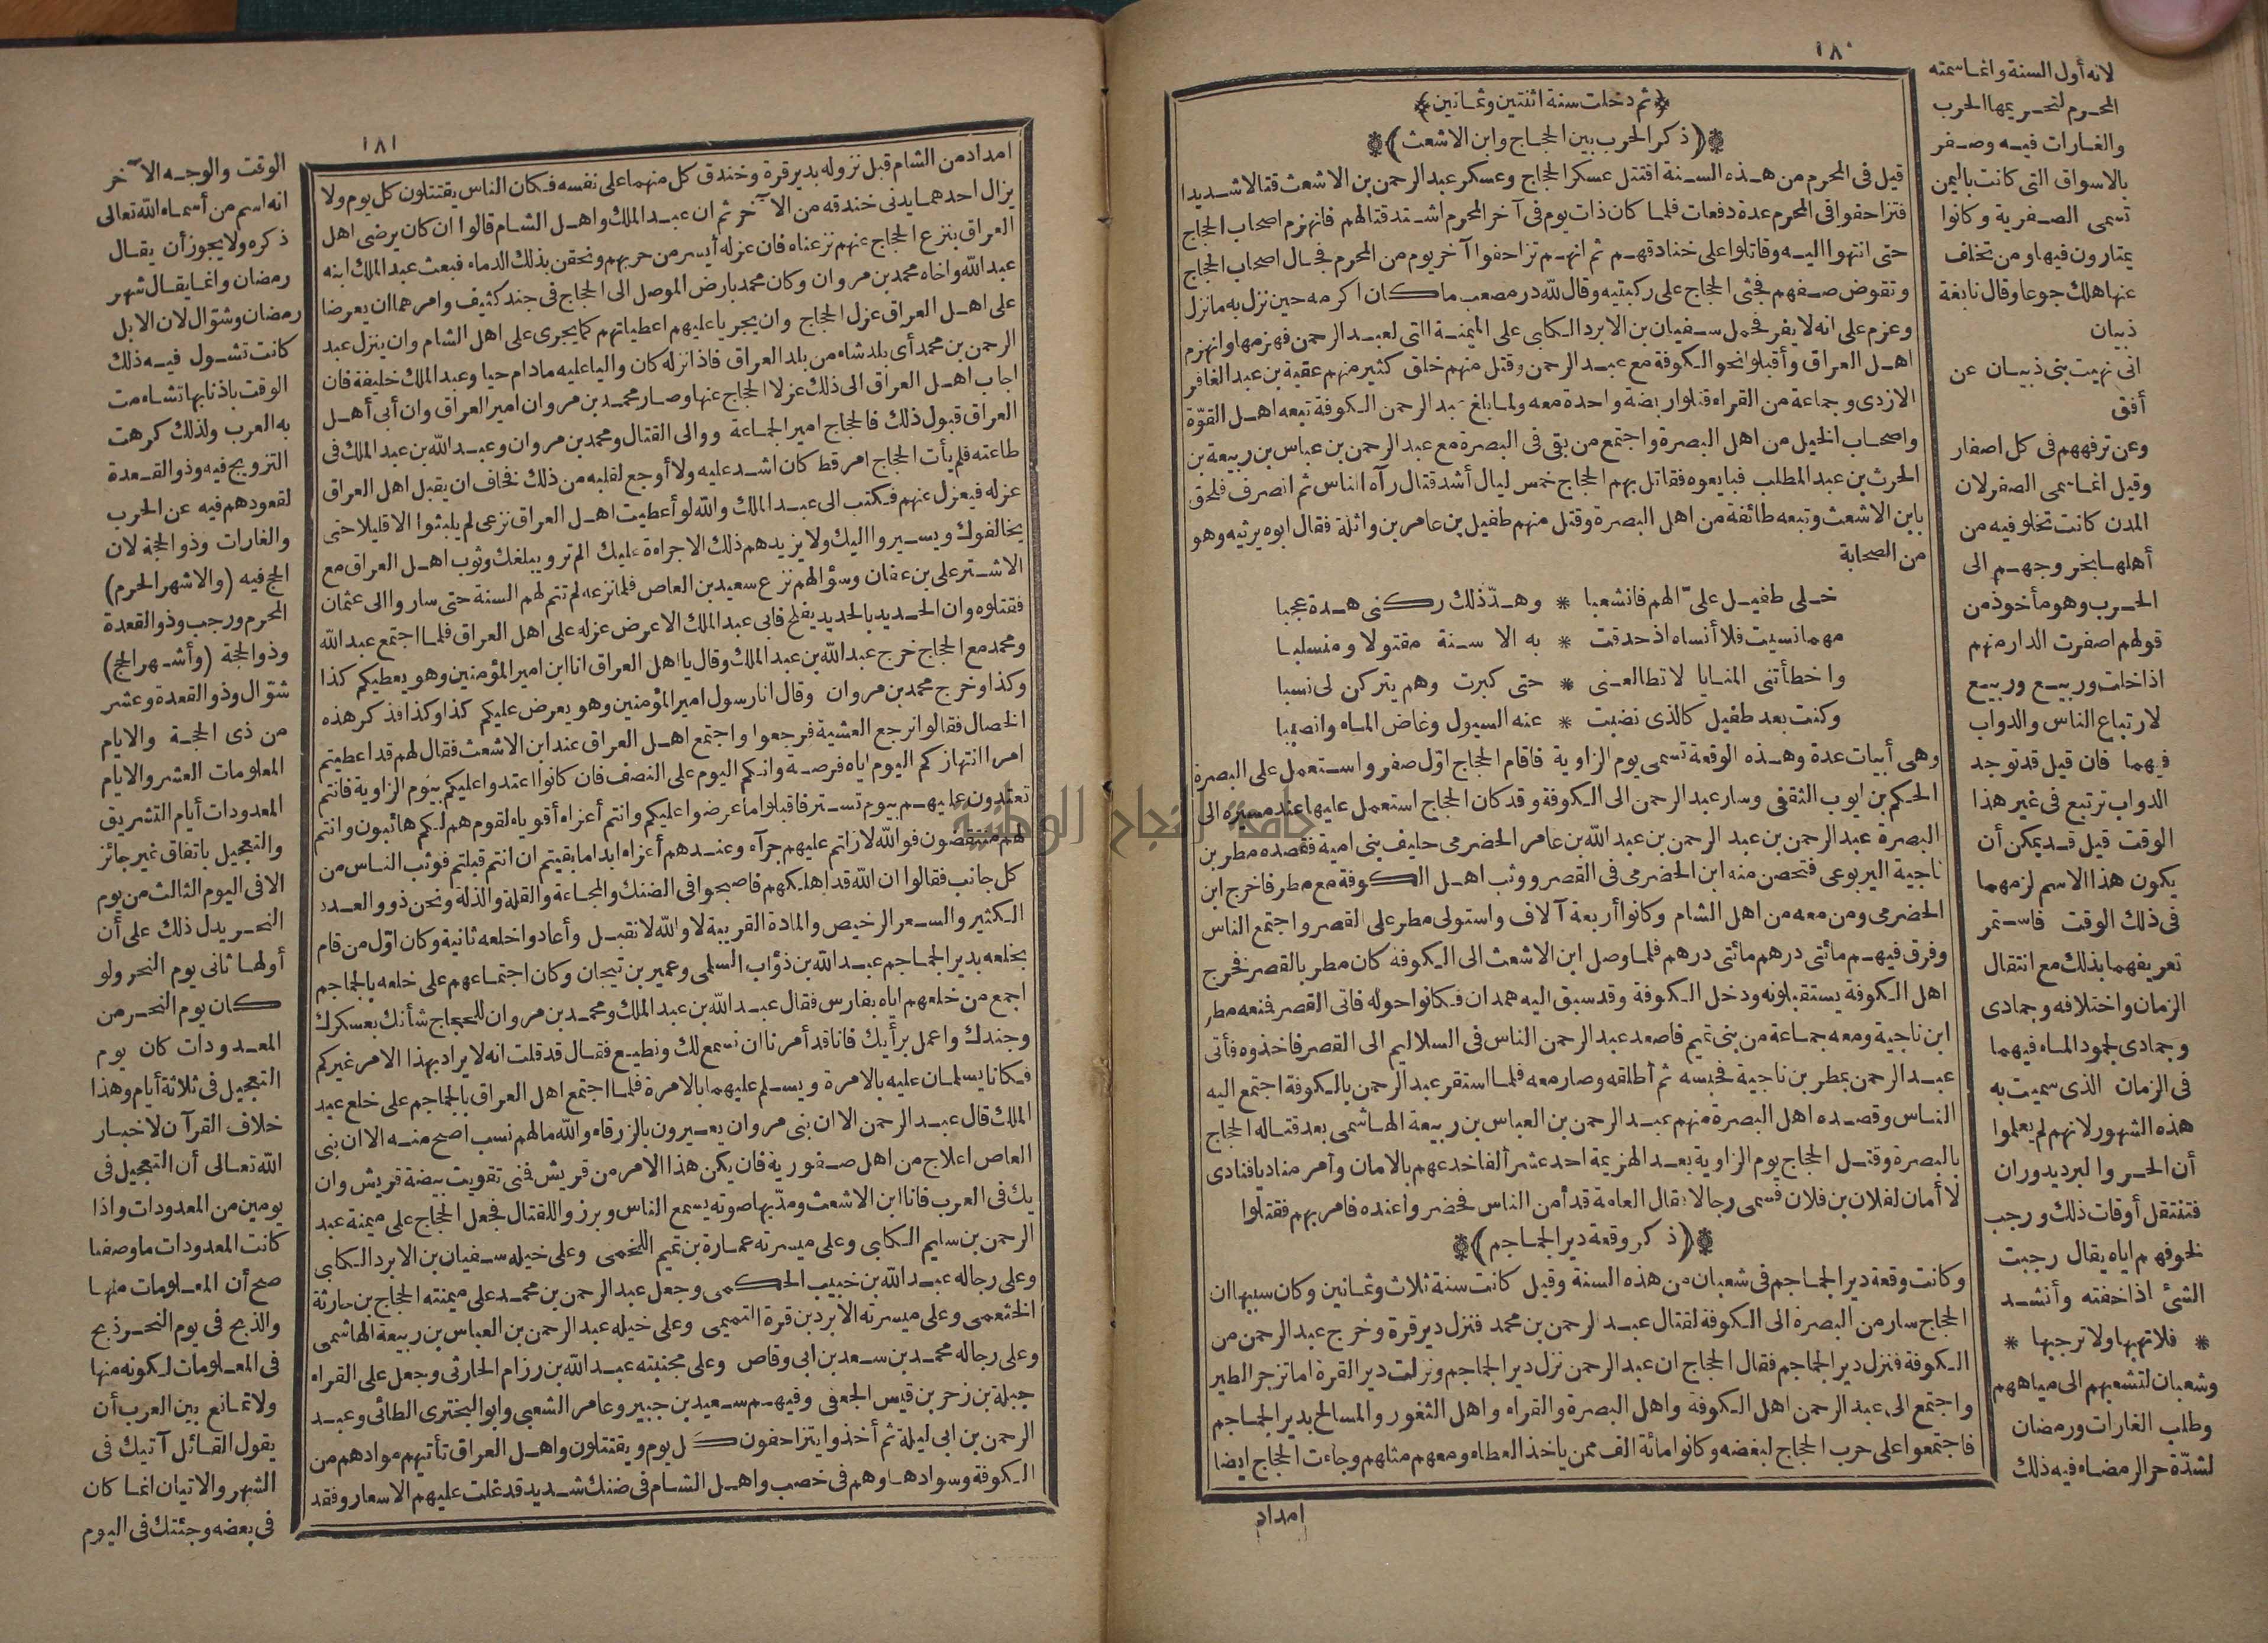 ١٨٠
﴿ثم دخلت سنة اثنتين وثمانين﴾
﴿ذكر الحرب بين الحجاج وابن الاشعث﴾
قيل فى المحرم من هذه السنة اقتتل عسكر الحجاج وعسكر عبد الرحمن بن الاشعث قتالا شديدا
فتزاحفوا فى المحرم عدة دفعات فلما كان ذات يوم فى آخر المحرم اشتد قتالهم فانهزم اصحاب الحجاج
حتى انتهوا اليه وقاتلوا على خنادقهم ثم انهم تزاحفوا آخر يوم من المحرم فجال اصحاب الحجاج
وتقوض صفهم فجثى الحجاج على ركبتيه وقال لله در مصعب ما كان اكرمه حين نزل به ما نزل
وعزم على انه لا يفر فحمل سفيان بن الابرد الكلبى على الميمنة التى لعبد الرحمن فهزمها وانهزم
اهل العراق وأقبلوا نحو الكوفة مع عبد الرحمن وقتل منهم خلق كثير منهم عقبة بن عبد الغافر
الازدى وجماعة من القراء قتلوا ربضة واحدة معه ولما بلغ عبد الرحمن الكوفة تبعه اهل القوّة
واصحاب الخيل من اهل البصرة واجتمع من بقى فى البصرة مع عبد الرحمن بن عباس بن ربيعة بن
الحرث بن عبد المطلب فبايعوه فقاتل بهم الحجاج خمس ليال أشد قتال رآه الناس ثم انصرف فلحق
بابن الاشعث وتبعه طائفة من اهل البصرة وقتل منهم طفيل بن عامر بن واثلة فقال ابوه يرثيه وهو
من الصحابة
خلى طفيل علىّ الهم فانشعبا * وهدّ ذلك ركنى هدة عجبا
مهما نسيت فلا أنساه اذ حدقت * به الاسنة مقتولا ومنسلبا
واخطأتنى المنايا لا تطالعنى * حتى كبرت وهم يتركن لى نسبا
وكنت بعد طفيل كالذى نضبت * عنه السيول وغاض الماء وانصبيا
وهى أبيات عدة وهذه الوقعة تسمى يوم الزاوية فاقام الحجاج اوّل صفر واستعمل على البصرة
الحكم بن ايوب الثقفى وسار عبد الرحمن الى الكوفة وقد كان الحجاج استعمل عليها عند مسيره الى
البصرة عبد الرحمن بن عبد الرحمن بن عبد الله بن عامر الحضرمى حليف بنى امية فقصده مطر بن
ناجية اليربوعى فتحصن منه ابن الحضرمى فى القصر ووثب اهل الكوفة مع مطر فاخرج ابن
الحضرمى ومن معه من اهل الشام وكانوا أربعة آلاف واستولى مطر على القصر واجتمع الناس
وفرق فيهم مائتى درهم مائتى درهم فلما وصل ابن الاشعث الى الكوفة كان مطر بالقصر فخرج
اهل الكوفة يستقبلونه ودخل الكوفة وقد سبق اليه همدان فكانوا حوله فاتى القصر فمنعه مطر
ابن ناجية ومعه جماعة من بنى تميم فاصعد عبد الرحمن الناس فى السلاليم الى القصر فاخذوه فأتى
عبد الرحمن بمطر بن ناجية فحبسه ثم أطلقه وصار معه فلما استقر عبد الرحمن بالكوفة اجتمع اليه
الناس وقصده اهل البصرة منهم عبد الرحمن بن العباس بن ربيعة الهاشمى بعد قتاله الحجاج
بالبصرة وقتل الحجاج يوم الزاوية بعد الهزيمة احد عشر ألفا خدعهم بالامان وأمر مناديا فنادى
لا أمان لفلان بن فلان فسمى رجالا فقال العامة قد أمن الناس فحضروا عنده فامر بهم فقتلوا
﴿ذكر وقعة دير الجماجم﴾
وكانت وقعة دير الجماجم فى شعبان من هذه السنة وقيل كانت سنة ثلاث وثمانين وكان سببها ان
الحجاج سار من البصرة الى الكوفة لقتال عبد الرحمن بن محمد فنزل دير قرة وخرج عبد الرحمن من
الكوفة فنزل دير الجماجم فقال الحجاج ان عبد الرحمن نزل دير الجماجم ونزلت دير القرة اما تزجر الطير
واجتمع الى عبد الرحمن اهل الكوفة واهل البصرة والقراء واهل الثغور والمسالح بدير الجماجم
فاجتمعوا على حرب الحجاج لبغضه وكانوا مائة الف ممن ياخذ العطاء ومعهم مثلهم وجاءت الحجاج ايضا
امداد
لانه أول السنة وانما سمته
المحرم لتحريمها الحرب
والغارات فيه وصفر
بالاسواق التى كانت باليمن
تسمى الصفرية وكانوا
يمتارون فيها ومن تخلف
عنها هلك جوعا وقال نابغة
ذبيان
انى نهيت بنى ذبيان عن
أفق
وعن ترفههم فى كل اصفار
وقيل انما سمى الصفر لان
المدن كانت تخلو فيه من
أهلها بخروجهم الى
الحرب وهو مأخوذ من
قولهم اصفرت الدار منهم
اذا خلت وربيع وربيع
لارتباع الناس والدواب
فيهما فان قيل قد توجد
الدواب ترتبع فى غير هذا
الوقت قيل قد يمكن أن
يكون هذا الاسم لزمهما
فى ذلك الوقت فاستمر
تعريفهما بذلك مع انتقال
الزمان واختلافه وجمادى
وجمادى لجمود الماء فيهما
فى الزمان الذى سميت به
هذه الشهور لانهم لم يعلموا
أن الحر والبرد يدوران
فتنتقل أوقات ذلك ورجب
لخوفهم اياه يقال رجبت
الشئ اذا خفته وأنشد
* فلا تهبها ولا ترجبها *
وشعبان لتشعبهم الى مياههم
وطلب الغارات ورمضان
لشدّة حر الرمضاء فيه ذلك
١٨١
امداد من الشام قبل نزوله بدير قرة وخندق كل منهما على نفسه فكان الناس يقتتلون كل يوم ولا
يزال احدهما يدنى خندقه من الآخر ثم ان عبد الملك واهل الشام قالوا ان كان يرضى اهل
العراق بنزع الحجاج عنهم نزعناه فان عزله أيسر من حربهم ونحقن بذلك الدماء فبعث عبد الملك ابنه
عبد الله واخاه محمد بن مروان وكان محمد بارض الموصل الى الحجاج فى جند كثيف وامرهما ان يعرضا
على اهل العراق عزل الحجاج وان يجريا عليهم اعطياتهم كما يجرى على اهل الشام وان ينزل عبد
الرحمن بن محمد أى بلد شاء من بلد العراق فاذا نزله كان واليا عليه ما دام حيا وعبد الملك خليفة فان
اجاب اهل العراق الى ذلك عزلا الحجاج عنها وصار محمد بن مروان امير العراق وان أبى أهل
العراق قبول ذلك فالحجاج امير الجماعة ووالى القتال ومحمد بن مروان وعبد الله بن عبد الملك فى
طاعته فلم يأت الحجاج امر قط كان اشد عليه ولا أوجع لقلبه من ذلك فخاف ان يقبل اهل العراق
عزله فيعزل عنهم فكتب الى عبد الملك والله لو أعطيت اهل العراق نزعى لم يلبثوا الا قليلا حتى
يخالفوك ويسيروا اليك ولا يزيدهم ذلك الا جراءة عليك الم تر ويبلغك وثوب اهل العراق مع
الاشتر على بن عفان وسؤالهم نزع سعيد بن العاص فلما نزعه لم تتم لهم السنة حتى ساروا الى عثمان
فقتلوه وان الحديد بالحديد يفلح فابى عبد الملك الا عرض عزله على اهل العراق فلما اجتمع عبد الله
ومحمد مع الحجاج خرج عبد الله بن عبد الملك وقال يا اهل العراق انا ابن امير المؤمنين وهو يعطيكم كذا
وكذا وخرج محمد بن مروان وقال انا رسول امير المؤمنين وهو يعرض عليكم كذا وكذا فذكر هذه
الخصال فقالوا نرجع العشية فرجعوا واجتمع اهل العراق عند ابن الاشعث فقال لهم قد اعطيتم
امرا انتهازكم اليوم اياه فرصة وانكم اليوم على النصف فان كانوا اعتدوا عليكم بيوم الزاوية فانتم
تعتدون عليهم بيوم تستر فاقبلوا ما عرضوا عليكم وانتم أعزاء أقوياء لقوم هم لكم هائبون وانتم
لهم منتقصون فوالله لا زلتم عليهم جرآء وعندهم أعزاء ابدا ما بقيتم ان انتم قبلتم فوثب الناس من
كل جانب فقالوا ان الله قد اهلكهم فاصبحوا فى الضنك والمجاعة والقلة والذلة ونحن ذوو العدد
الكثير والسعر الرخيص والمادة القريبة لا والله لا نقبل وأعادوا خلعه ثانية وكان اوّل من قام
بخلعه بدير الجماجم عبد الله بن ذؤاب السلمى وعمير بن تيجان وكان اجتماعهم على خلعه بالجماجم
اجمع من خلعهم اياه بفارس فقال عبد الله بن عبد الملك ومحمد بن مروان للحجاج شأنك بعسكرك
وجندك واعمل برأيك فانا قد أمرنا ان نسمع لك ونطيع فقال قد قلت انه لا يراد بهذا الامر غيركم
فكانا يسلمان عليه بالامرة ويسلم عليهما بالامرة فلما اجتمع اهل العراق بالجماجم على خلع عبد
الملك قال عبد الرحمن الا ان بنى مروان يعيرون بالزرقاء والله ما لهم نسب اصح منه الا ان بنى
العاص اعلاج من اهل صفورية فان يكن هذا الامر من قريش فمنى تقويت بيضة قريش وان
يك فى العرب فانا ابن الاشعث ومدّ بها صوته يسمع الناس وبرزوا للقتال فجعل الحجاج على ميمنة عبد
الرحمن بن سليم الكلبى وعلى ميسرته عمارة بن تميم اللخمى وعلى خيله سفيان بن الابرد الكلبى
وعلى رجاله عبد الله بن خبيب الحكمى وجعل عبد الرحمن بن محمد على ميمنته الحجاج بن حارثة
الخثعمى وعلى ميسرته الابرد بن قرة التميمى وعلى خيله عبد الرحمن بن العباس بن ربيعة الهاشمى
وعلى رجاله محمد بن سعد بن ابى وقاص وعلى مجنبته عبد الله بن رزام الحارثى وجعل على القراء
جبلة بن زحر بن قيس الجعفى وفيهم سعيد بن جبير وعامر الشعبى وابو البخترى الطائى وعبد
الرحمن بن ابى ليلة ثم أخذوا يتزاحفون كل يوم ويقتتلون واهل العراق تأتيهم موادهم من
الكوفة وسوادها وهم فى خصب واهل الشام فى ضنك شديد قد غلت عليهم الاسعار وفقد
الوقت والوجه الآخر
انه اسم من أسماء الله تعالى
ذكره ولا يجوز أن يقال
رمضان وانما يقال شهر
رمضان وشوّال لان الابل
كانت تشول فيه ذلك
الوقت باذنابها تشاءمت
به العرب ولذلك كرهت
التزويج فيه وذو القعدة
لقعودهم فيه عن الحرب
والغارات وذو الحجة لان
الحج فيه (والاشهر الحرم)
المحرم ورجب وذو القعدة
وذو الحجة (وأشهر الحج)
شوّال وذو القعدة وعشر
من ذى الحجة والايام
المعلومات العشر والايام
المعدودات أيام التشريق
والتعجيل باتفاق غير جائز
الا فى اليوم الثالث من يوم
النحر يدل ذلك على أن
أولها ثانى يوم النحر ولو
كان يوم النحر من
المعدودات كان يوم
التعجيل فى ثلاثة أيام وهذا
خلاف القرآن لاخبار
الله تعالى أن التعجيل فى
يومين من المعدودات واذا
كانت المعدودات ما وصفنا
صح أن المعلومات منها
والذبح فى يوم النحر ذبح
فى المعلومات لكونه منها
ولا تمانع بين العرب أن
يقول القائل آتيك فى
الشهر والاتيان انما كان
فى بعضه وجئتك فى اليوم
جامعة النجاح الوطنية